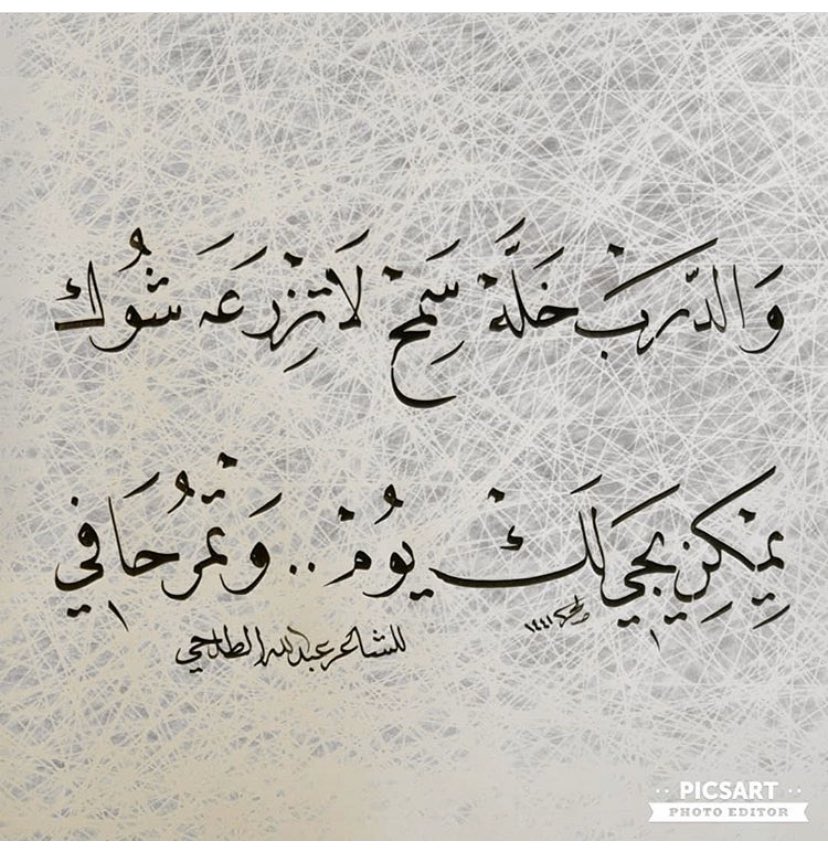 وَالدَّربْ خَلَّهْ سَمِحْ لَا تِزْرَعَه شُوك
يِمْكِن يِجي لَكْ يُومْ .. وَتْمُر حَافي
١٤٤١
للشاعر عبدالله الطلاحي
PICSART
PHOTO EDITOR